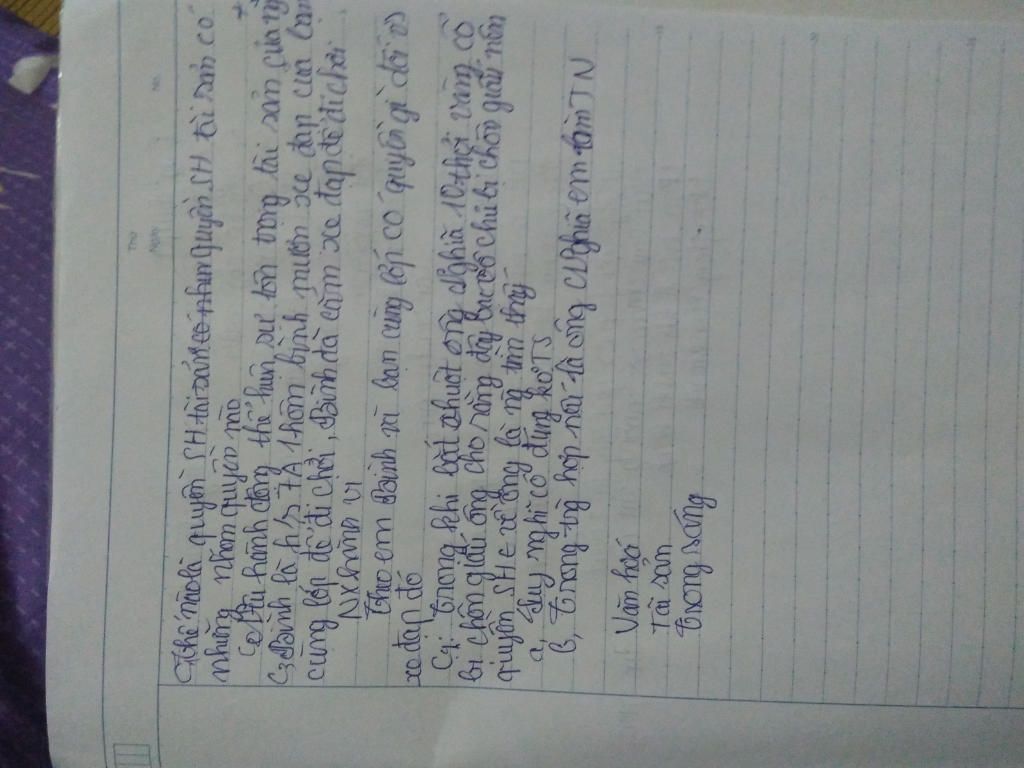 C1 Thế nào là quyền SH tài sản có nhưn Quyền SH tài sản có
những nhóm quyền nào
C2 Nêu hành động thể hiện sự tôn trọng tài sản của ng
C3 Bình là h/s 7A 1 hôm bình mượn xe đạp của bạn
cùng lớp để đi chơi, Bình đã cầm xe đạp để đi chơi
Nx hành vi
Theo em Bình và bạn cùng lớp có quyền gì đối với
xe đạp đó
C4: Trong khi bắt chuột ông Nghĩa 10 thỏi vàng có
bị chôn giấu ông cho rằng đây là cổ chủ bị chôn giấu nên
quyền SH Є về ông là ng tìm thấy
a, Suy nghĩ có đúng ko TS
b, Trong trg hợp nếu là ông CL Nghĩa em làm TN
Văn hoá
Tài sản
Trong sáng